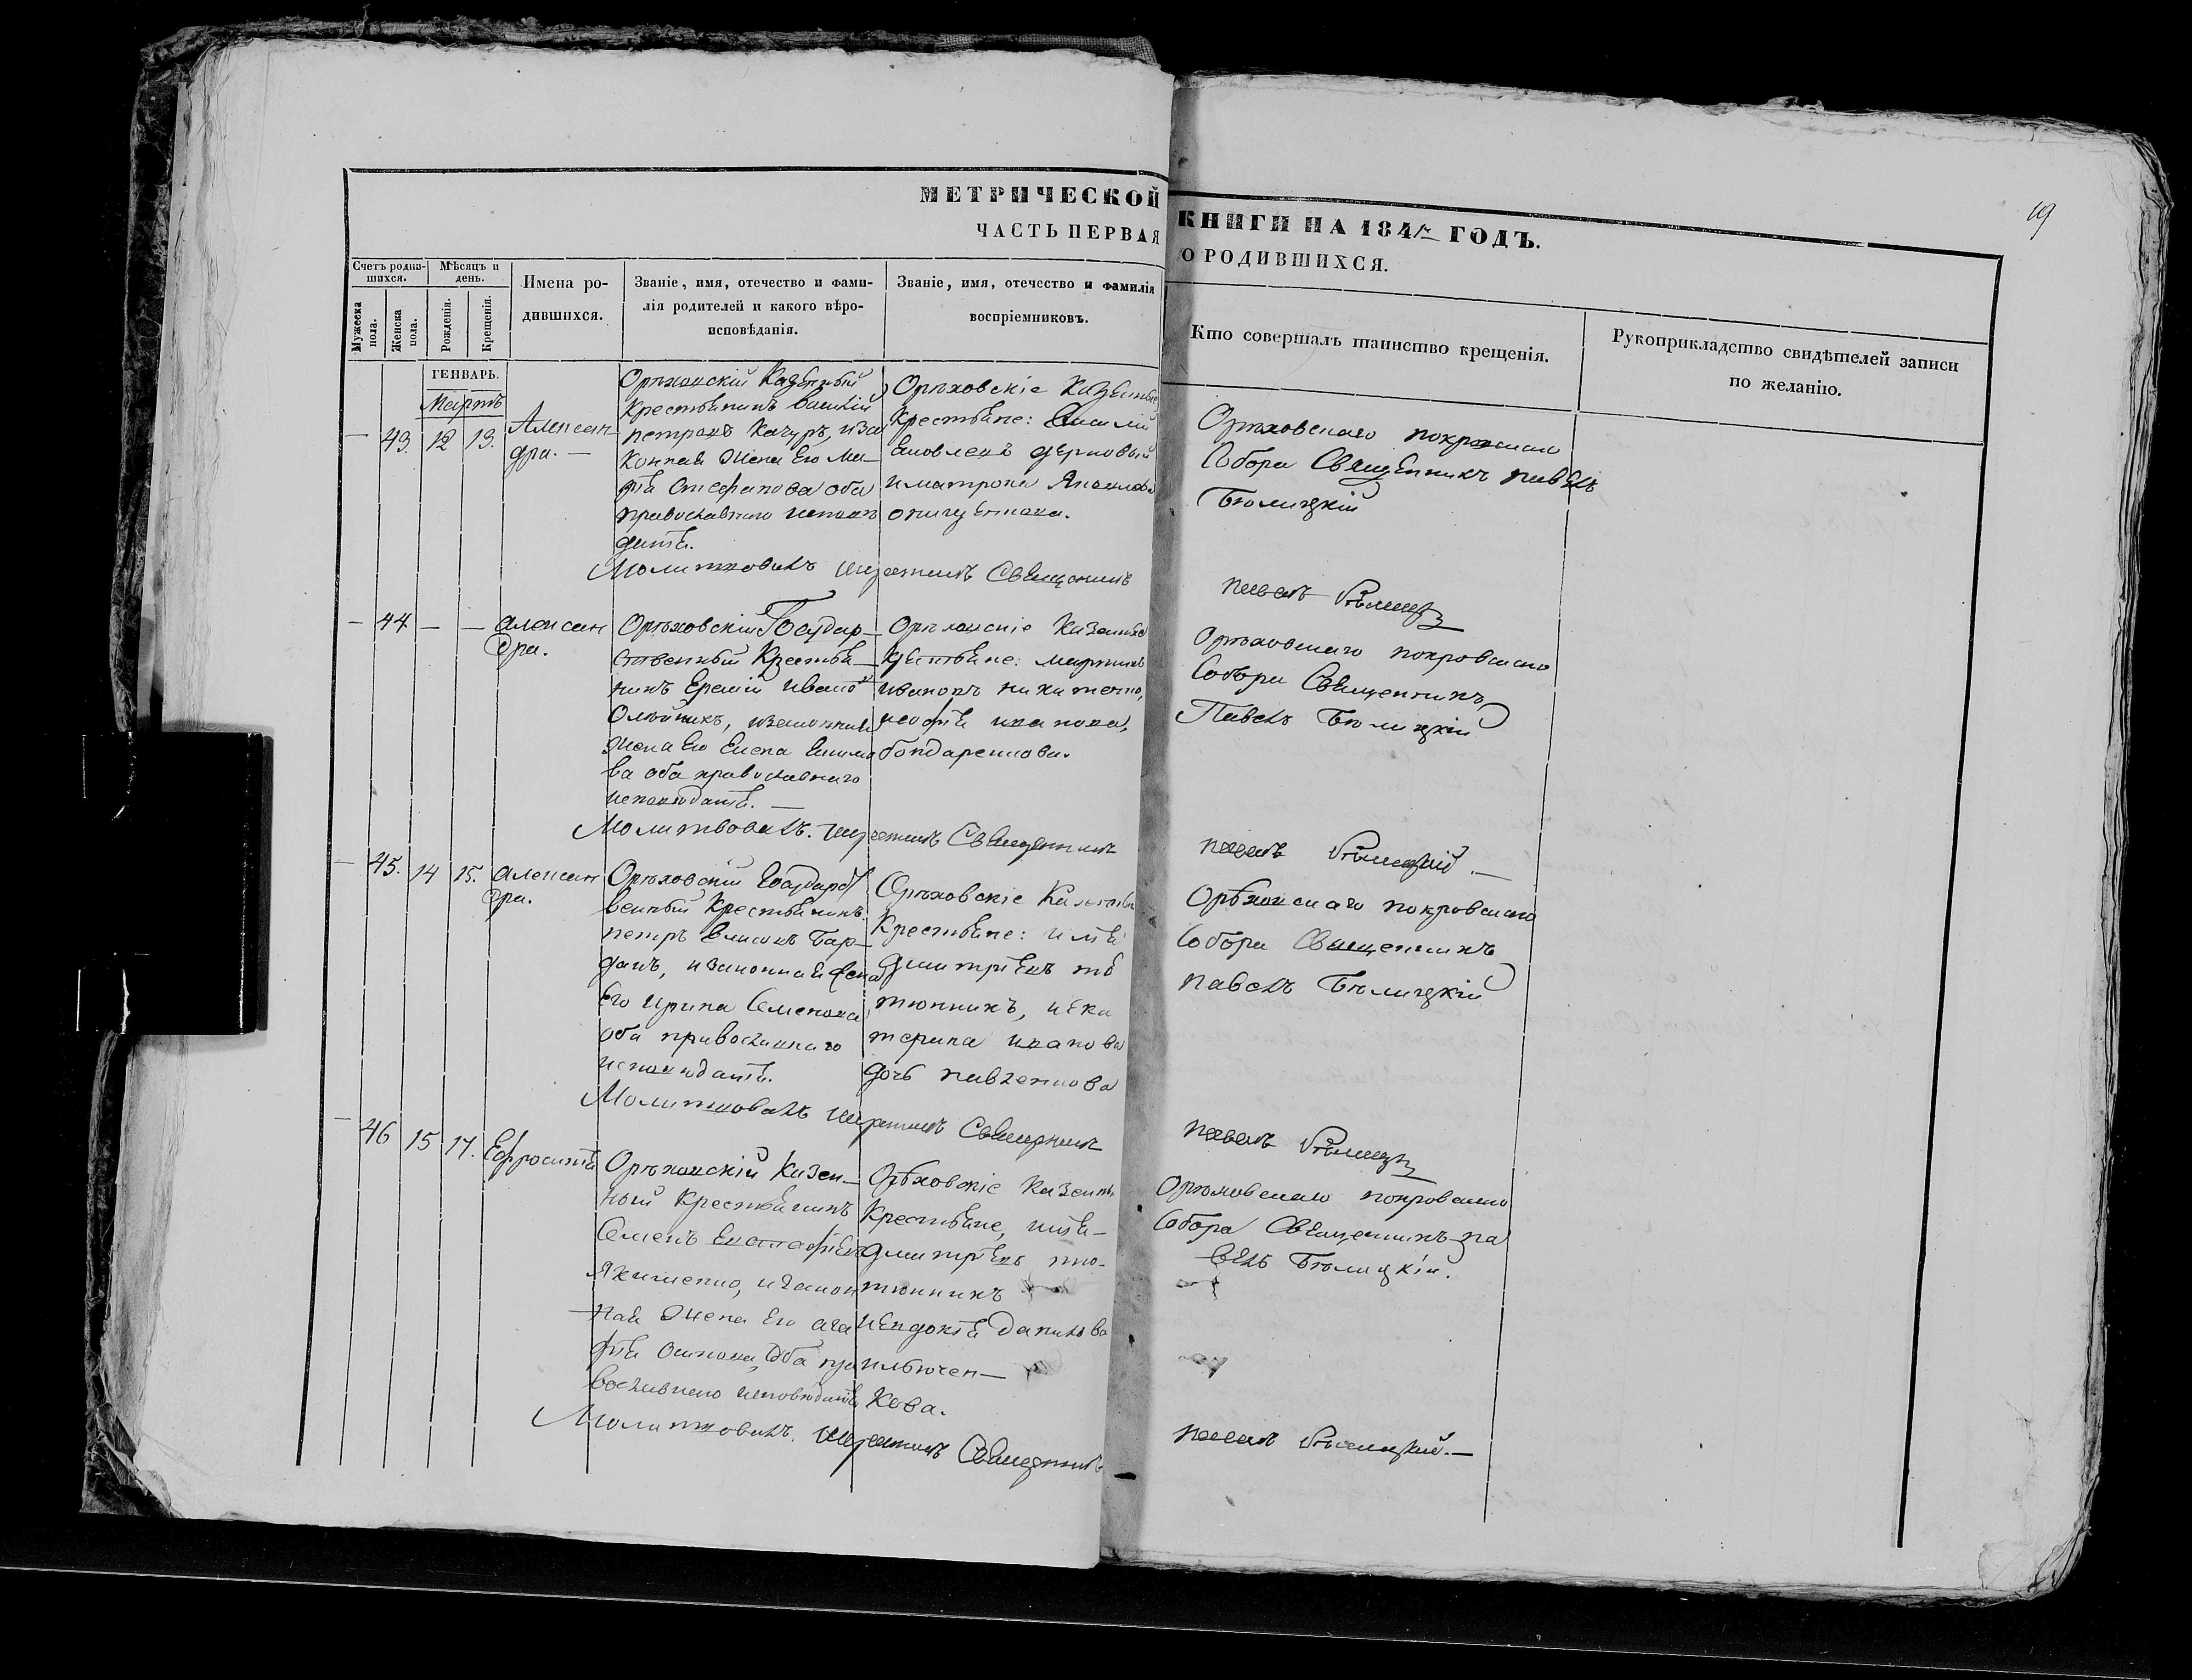 19
МЕТРИЧЕСКОЙ КНИГИ НА 1841й ГОДЪ.
ЧАСТЬ ПЕРВАЯ О РОДИВШИХСЯ.
Счетъ родив-
шихся.
Мужеска пола.
Женска пола.
Мѣсяцъ и
день.
Рожденія.
Крещенія.
Имена ро-
дившихся.
Званіе, имя, отечество и фами-
лія родителей и какого вѣро-
исповѣданія.
Званіе, имя, отечество и фамилія
воспріемниковъ.
Кто совершалъ таинство крещенія.
Рукоприкладство свидѣтелей записи
по желанію.
ГЕНВАРЬ.
Мартъ
— 43. 12 13.
Алексан-
дра. —
Орѣховскій Казенный
Крестьянинъ Василій
петровъ Качуръ, иза
Конная Жена Его Ма-
фія Стефанова оба
православнаго исповѣ
данія.
Орѣховскіе Казенные
Крестьяне: Василій
Яковлевъ
иматрона
Орѣховскаго покровскаго
Собора Священникъ павелъ
Бѣлицкій
Молитвовалъ икрестилъ Священникъ павелъ Бѣлицкій
— 44 — —
Алексан
дра.
Орѣховскій Государ-
ственный Крестья-
нинъ Еремій Ивановъ
Олѣйникъ, изаконная
жена Его Елена Екимо
ва оба православнаго
исповѣданія. —
Орѣховскіе Казенные
Крестьяне: мартинъ
ивановъ никитенко,
иафія иванова,
бондаренкова.
Орѣховскаго покровскаго
Собора Священникъ
Павелъ Бѣлицкій
Молитвовалъ. икрестилъ Священникъ павелъ Бѣлицкій. —
— 45. 14 15.
Алексан
дра.
Орѣховскій Государст
венный Крестьянинъ
петръ Власовъ Бар-
данъ, изаконная Жена
Его Ирина Семенова
оба православнаго
исповѣданія.
Орѣховскіе Казенные
Крестьяне: илія
Дмитріевъ тю
тюнникъ, иека
терина иванова
дочь павленкова
Орѣховскаго покровскаго
Собора Священникъ
павелъ Бѣлицкій
Молитвовалъ икрестилъ Священникъ павелъ Бѣлицкій
— 46 15 17.
Ефросинія
Орѣховскій Казен-
ный Крестьянинъ
Семенъ Евстафіевъ
Якименко, изакон
ная Жена Его ага
фія Осипова, Оба пра
вославнаго исповѣданія
Орѣховскіе Казенные
Крестьяне, илія-
Дмитріевъ тю-
тюнникъ
иевдокія Данилова
ильючен-
кова.
Орѣховскаго покровскаго
Собора Священникъ па
велъ Бѣлицкій.
Молитвовалъ. икрестилъ Священникъ павелъ Бѣлицкій. —